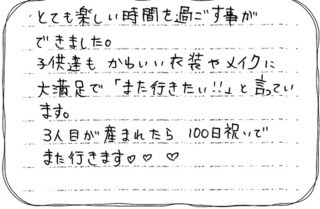 とても楽しい時間を過ごす事が
できました。
子供達も かわいい衣装やメイクに
大満足で「また行きたい!!」と言ってい
ます。
3人目が産まれたら 100日祝いで
また行きます♡♡ ♡